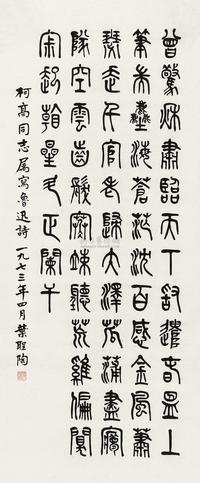 曾驚秋肅臨天下敢遣春溫上
筆耑塵海蒼茫沈百感金風蕭
瑟走千官老歸大澤菰蒲盡夢
隊空雲齒髮寒竦聽荒雞偏闃
寂起看星斗正闌干
柯高同志属寫魯迅詩 一九七三年四月葉聖陶